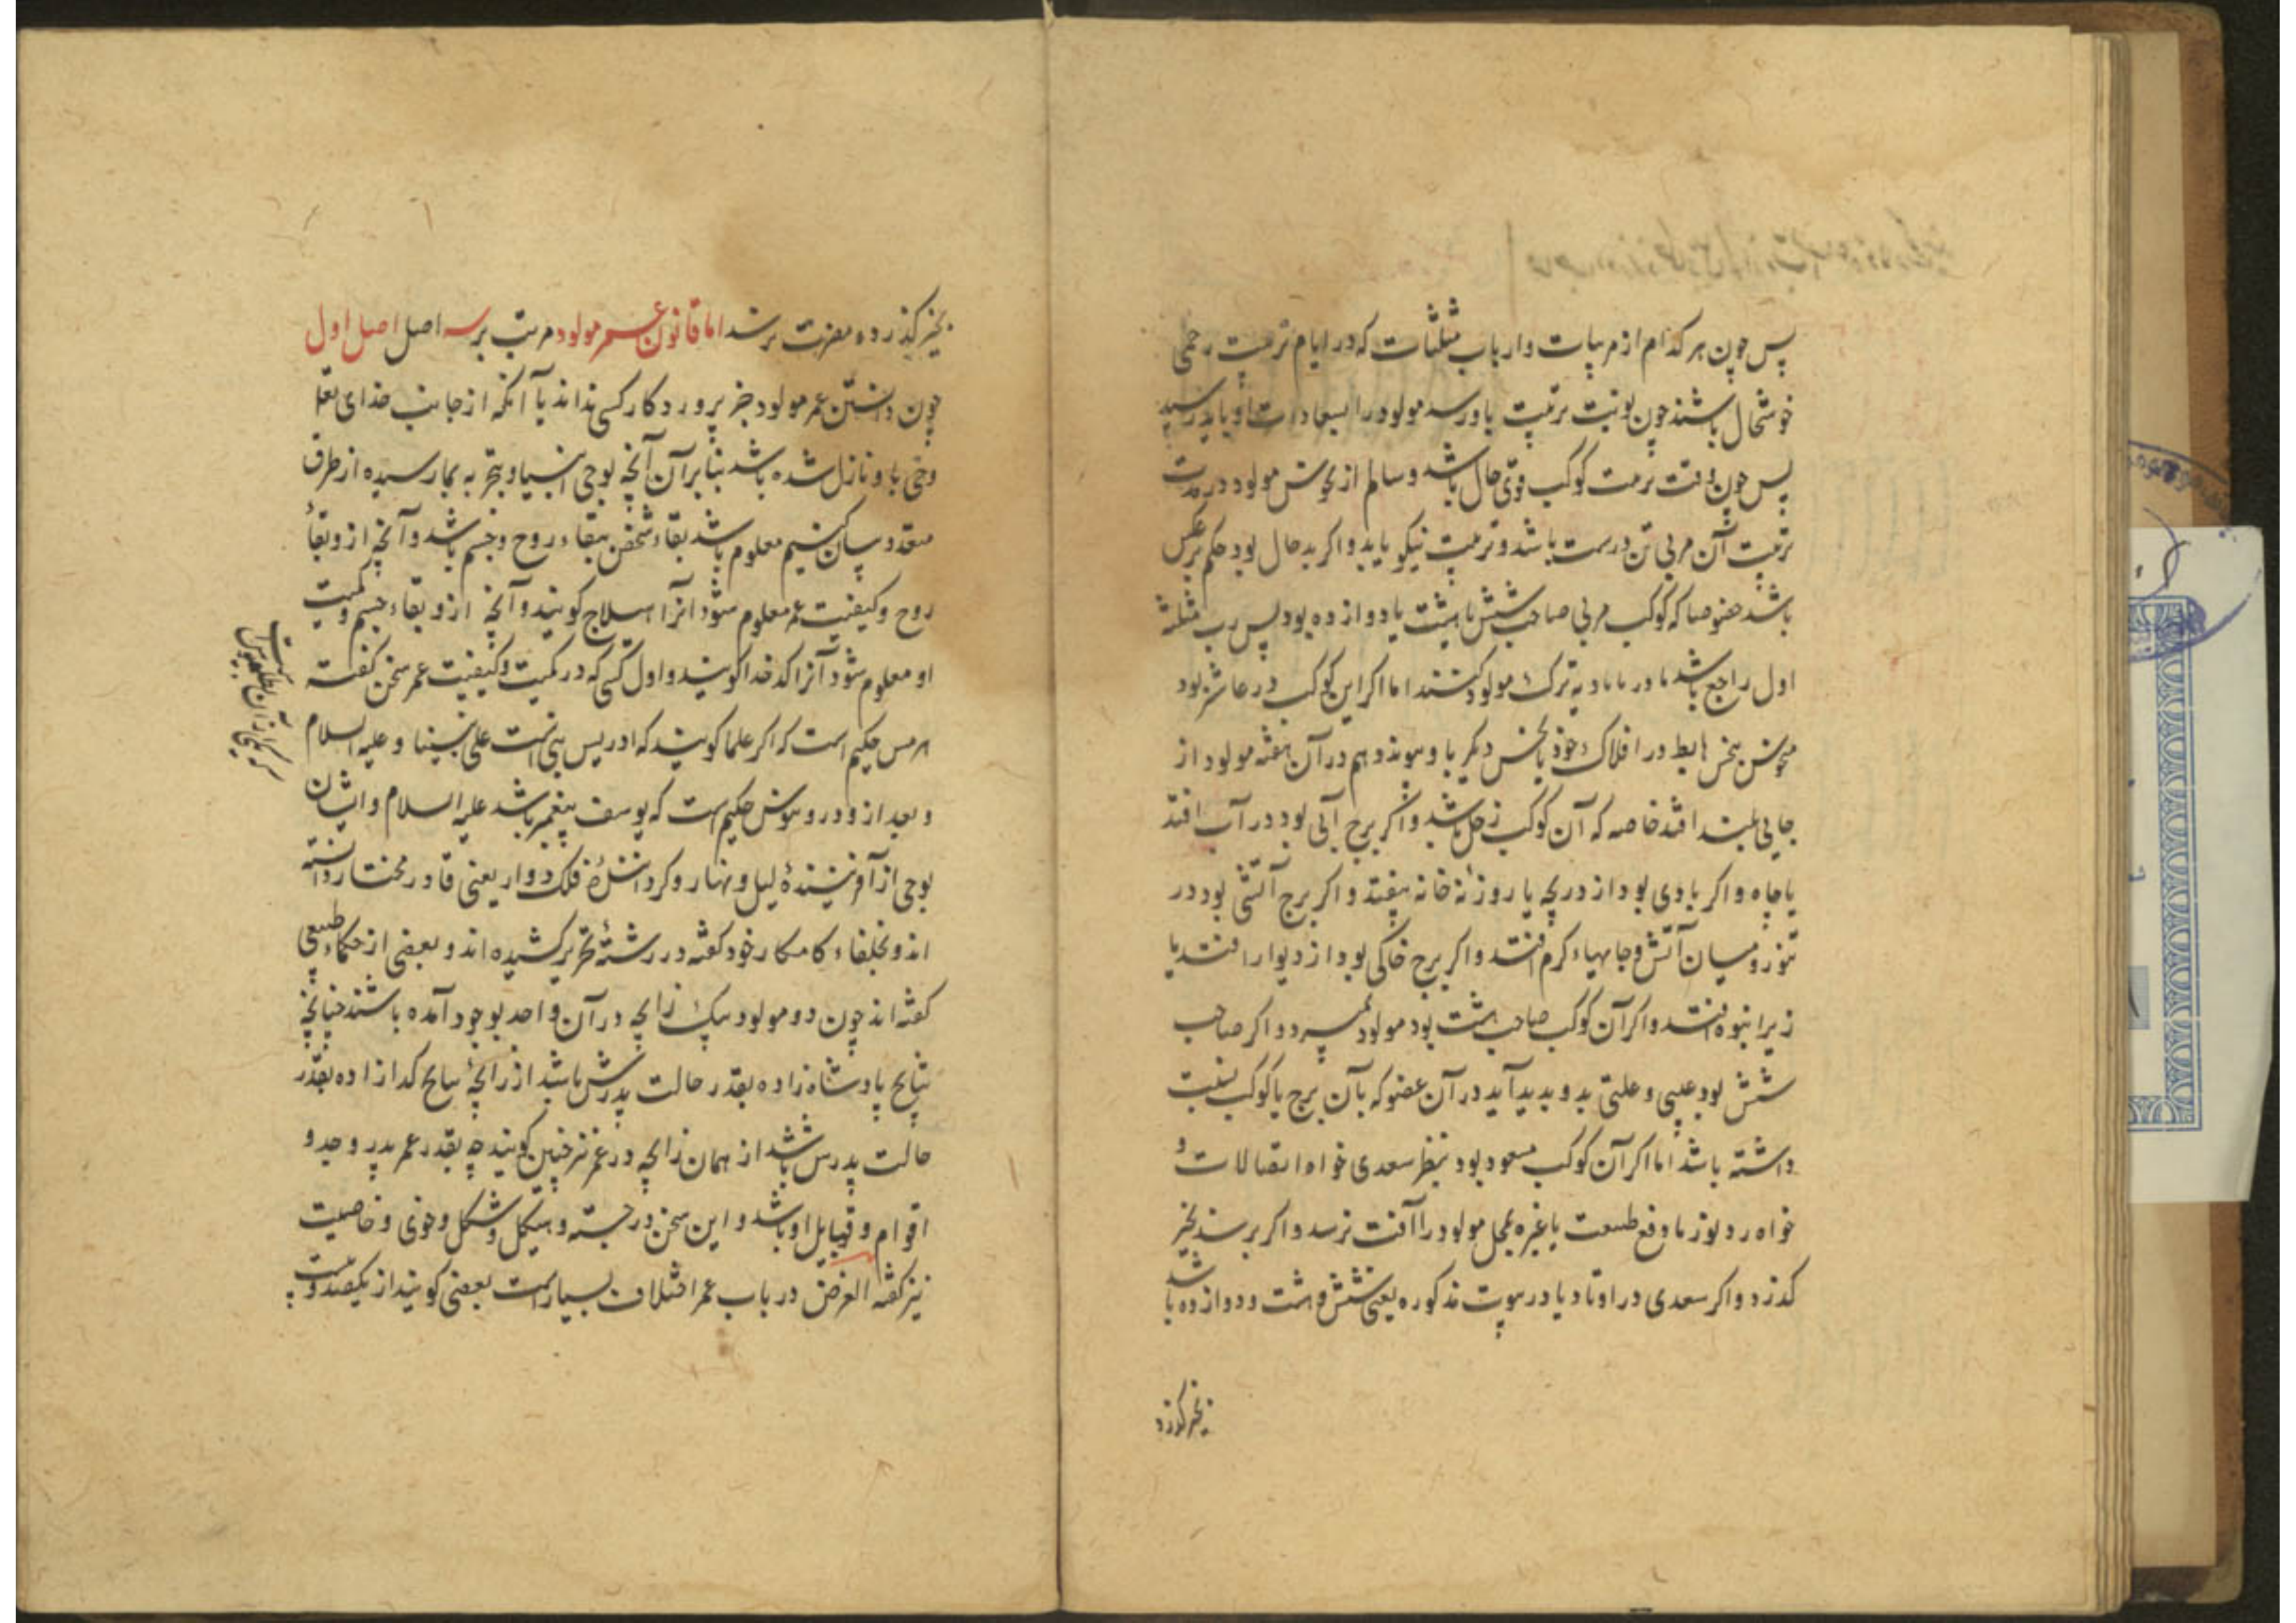 پس چون هر کدام از مربیات و ارباب مثلثات که در ایام تربیت رحمی
خوشحال باشند چون نوبت تربیت باو رسد مولود را سعادات او باید رسید
پس چون وقت تربیت کوکب قوی حال باشد و سالم از نحوس مولود در مدت
تربیت آن مربی تن درست باشد و تربیت نیکو یابد و اکر بد حال بود حکم برعکس
باشد خصوصا که کوکب مربی صاحب شش یا هشت یا دوازده بود پس رب مثلثه
اول راجع باشد مادر یا دایه ترک مولود کنند اما اکر این کوکب در عاشر بود
منحوس بنحس هابط در افلاک خود یا نحس دیکر باو پیوندد هم در آن هفته مولود از
جایی بلند افتد خاصه که آن کوکب زحل باشد و اکر برج آبی بود در آب افتد
یا چاه و اکر بادی بود از دریچه یا روزنه خانه بیفتد و اکر برج آتشی بود در
تنور و میان آتش و جایهاء کرم افتد و اکر برج خاکی بود از دیوار افتد یا
زیر انبوه افتد و اکر آن کوکب صاحب هشت بود مولود بمیرد و اکر صاحب
شش بود عیبی و علتی بدو پدید آید در آن عضو که بآن برج یا کوکب نسبت
داشته باشد اما اکر آن کوکب مسعود بود بنظر سعدی خواه اتصالات و
خواه رد نور یا دفع طبیعت یا غیره بمحل مولود را آفت نرسد و اکر برسد بخیر
کذرد و اکر سعدی در اوتاد یا در بیوت مذکوره یعنی شش و هشت و دوازده باشد
بخیر کذرد
بخیر کذرد و مضرت نرسد اما قانون عمر مولود مرتب بر سه اصل اصل اول
چون دانستن عمر مولود جز پروردکار کسی نداند یا آنکه از جانب خدای تعالی
وحی باو نازل شده باشد بنابرآن آنچه بوحی انبیا و تجربه بما رسیده از طرق
متعدد بیان کنیم معلوم باشد بقاء شخص ببقاء روح و جسم باشد و آنچه ازو بقاء
روح و کیفیت عمر معلوم شود آنرا هیلاج کویند و آنچه ازو بقاء جسم و کمیت
او معلوم شود آنرا کدخدا کویند و اول کسی که در کمیت و کیفیت عمر سخن کفته
هرمس حکیم است که اکثر علما کویند که ادریس نبی است علی نبینا و علیه السلام
و بعد ازو دروثیوش حکیم است که یوسف پیغمبر باشد علیه السلام و ایشان
بوحی از آفریننده لیل و نهار و کرداننده فلک دوار یعنی قادر مختار دانسته
اند و بخلفاء کامکار خود کفته در رشته تحریر کشیده اند و بعضی از حکماء طبیعی
کفته اند چون دو مولود بیک زایچه در آن واحد بوجود آمده باشند چنانچه
نتایج پادشاه زاده بقدر حالت پدرش باشد از زایچه نتایج کدازاده بقدر
حالت پدرش باشد از همان زایچه در عمر نیز چنین کویند چه بقدر عمر پدر و جد و
اقوام و قبایل او باشد و این سخن در جسته و هیکل و شکل و خوی و خاصیت
نیز کفته الغرض در باب عمر اختلاف بسیار است بعضی کویند از یکصد و بیست